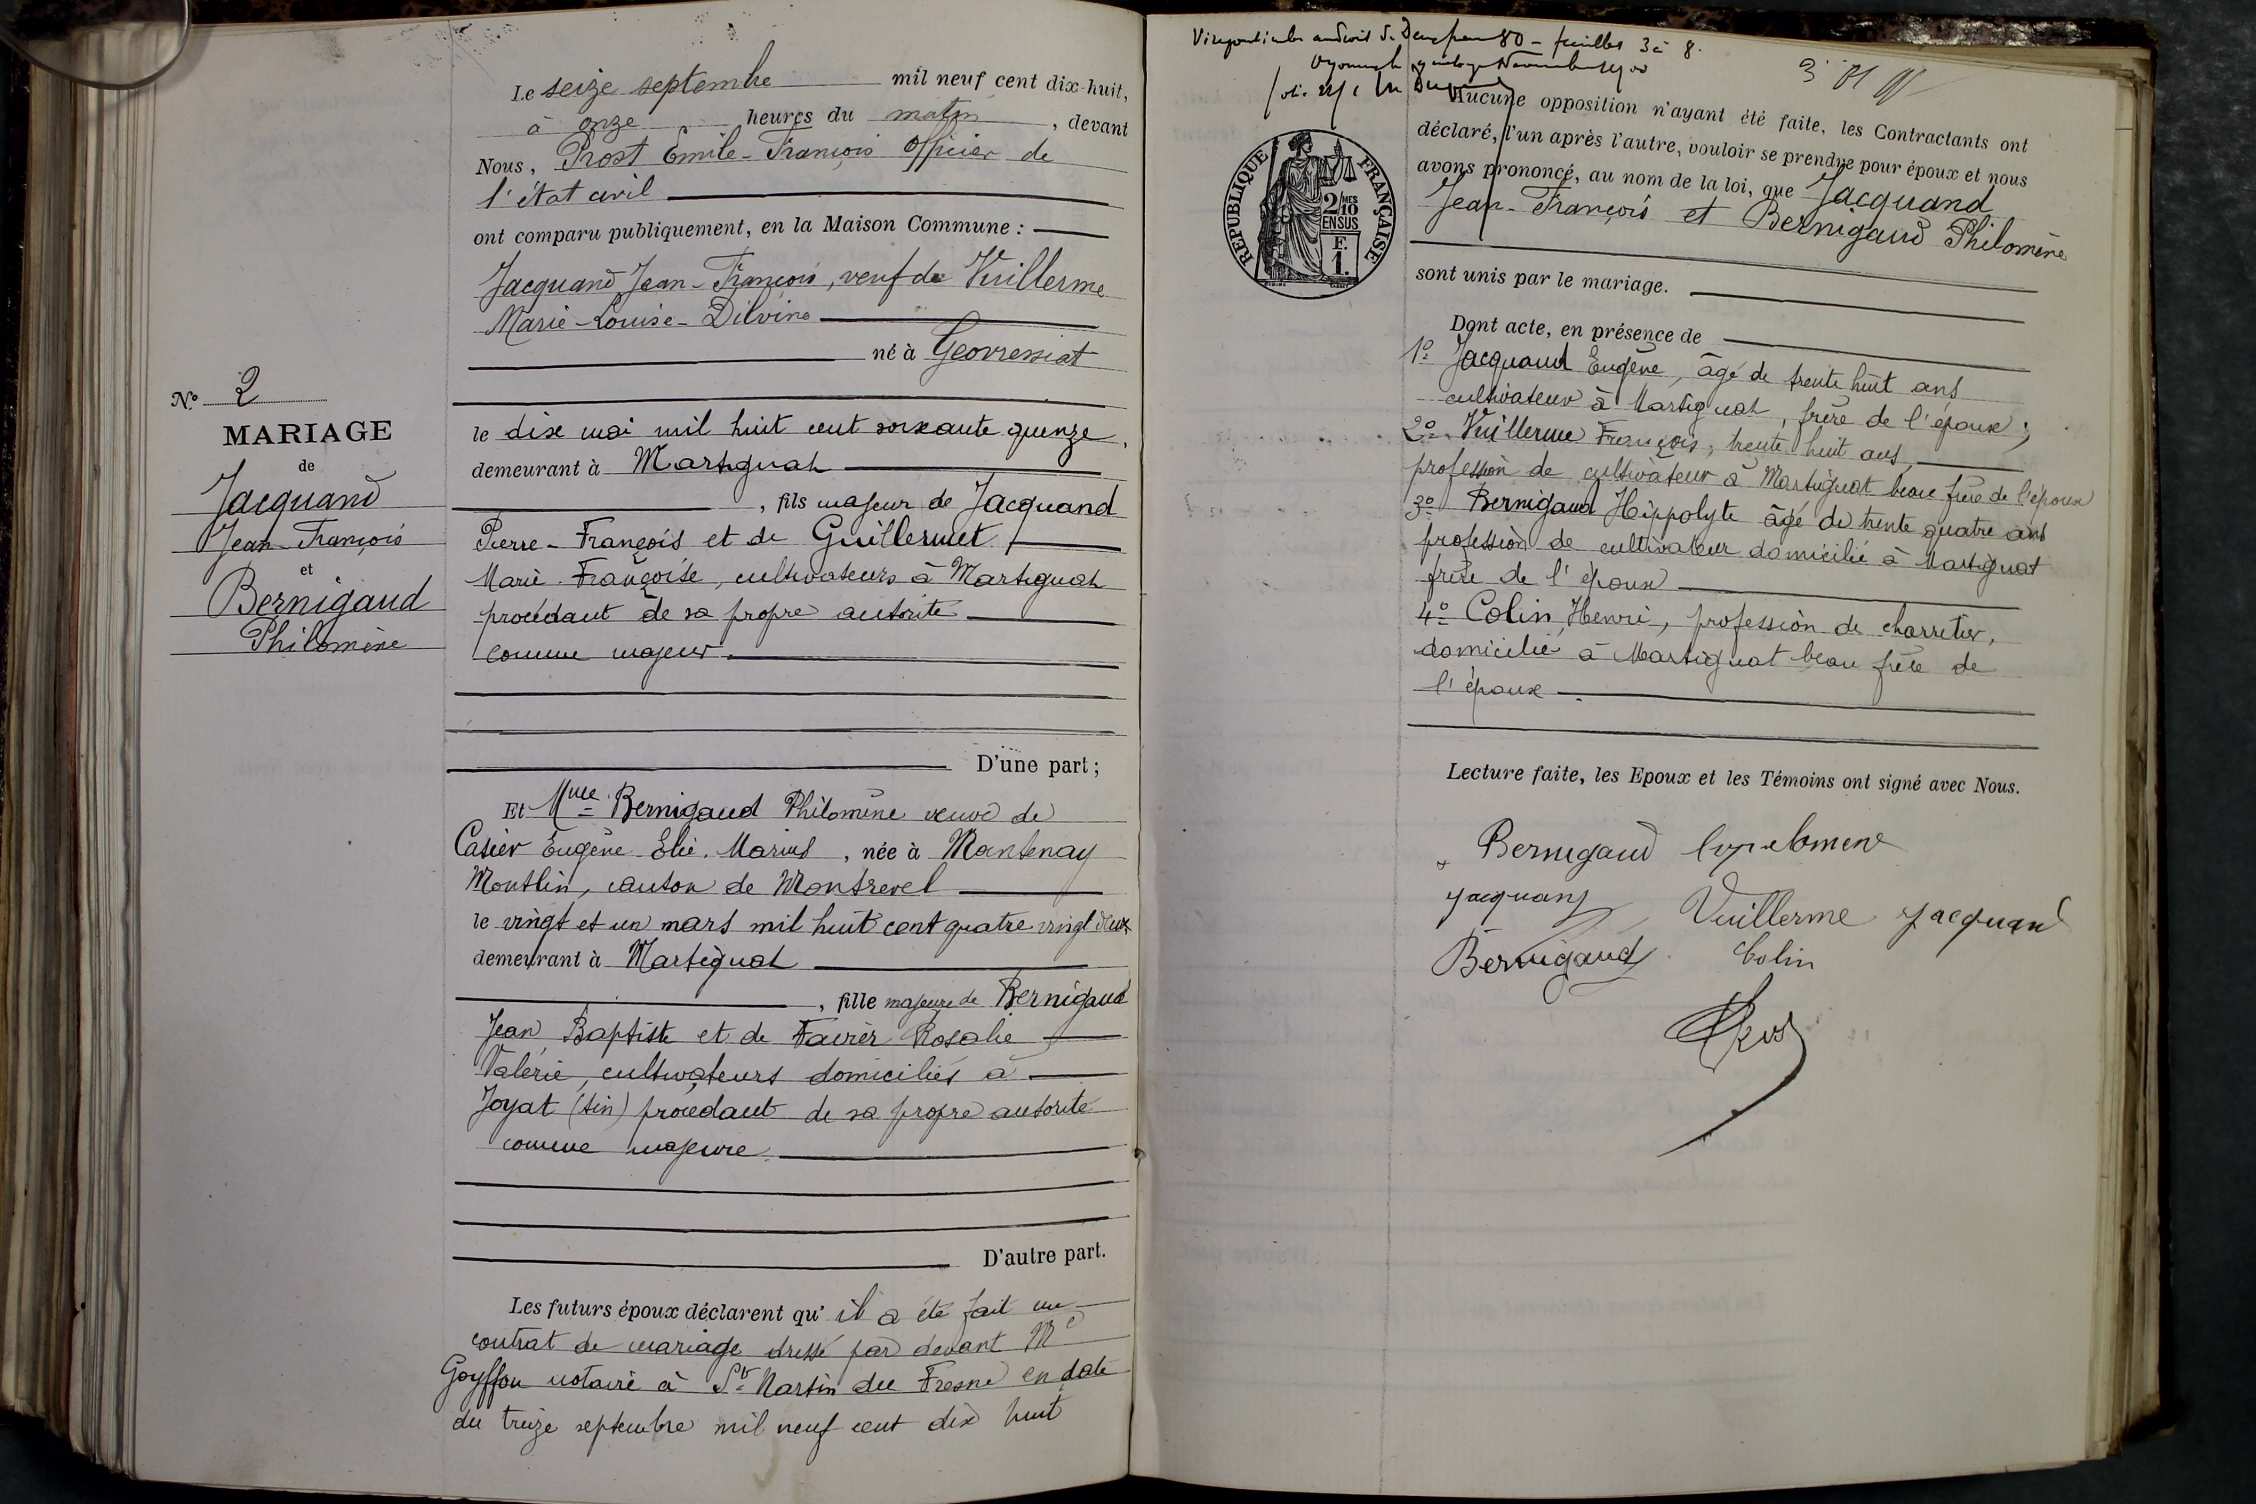 Le seize septembre mil neuf cent dix-huit,
à onze heures du matin, devant
Nous, Prost Emile-François officier de
l'état civil
ont comparu publiquement, en la Maison Commune :
Jacquand Jean-François, veuf de Vuillerme
Marie-Louise-Dilvine
né à Geovressiat
N° 2
MARIAGE
de
Jacquand
Jean-François
et
Bernigaud
Philomène
le dix mai mil huit cent soixante quinze,
demeurant à Martignat
, fils majeur de Jacquand
Pierre-François et de Guillermet
Marie-Françoise, cultivateurs à Martignat
procédant de sa propre autorité
comme majeur.
D'une part ;
Et Mme Bernigaud Philomène veuve de
Casier Eugène Elie. Marius, née à Mantenay
Montlin, canton de Montrevel
le vingt et un mars mil huit cent quatre vingt deux
demeurant à Martignat
, fille majeure de Bernigaud
Jean Baptiste et de Favier Rosalie
Valérie, cultivateurs domiciliés à
Joyat (Ain) procédant de sa propre autorité
comme majeure
D'autre part.
Les futurs époux déclarent qu' il a été fait un
contrat de mariage dressé par devant Me
Goyffon notaire à St Martin du Fresne en date
du treize septembre mil neuf cent dix huit
80 - feuilles 3 à 8.
RÉPUBLIQUE FRANÇAISE
2/10 MES
EN SUS
F.
1.
Aucune opposition n'ayant été faite, les Contractants ont
déclaré, l'un après l'autre, vouloir se prendre pour époux et nous
avons prononcé, au nom de la loi, que Jacquand
Jean-François et Bernigaud Philomène
sont unis par le mariage.
Dont acte, en présence de
1° Jacquand Eugène, âgé de trente huit ans
cultivateur à Martignat, frère de l'époux ;
2° Vuillerme François, trente huit ans,
profession de cultivateur à Martignat beau frère de l'époux
3° Bernigaud Hippolyte âgé de trente quatre ans
profession de cultivateur domicilié à Martignat
frère de l'époux
4° Colin Henri, profession de charretier,
domicilié à Martignat beau frère de
l'époux
Lecture faite, les Epoux et les Témoins ont signé avec Nous.
Bernigaud
Jacquand Vuillerme Jacquand
Bernigaud Colin
Prost